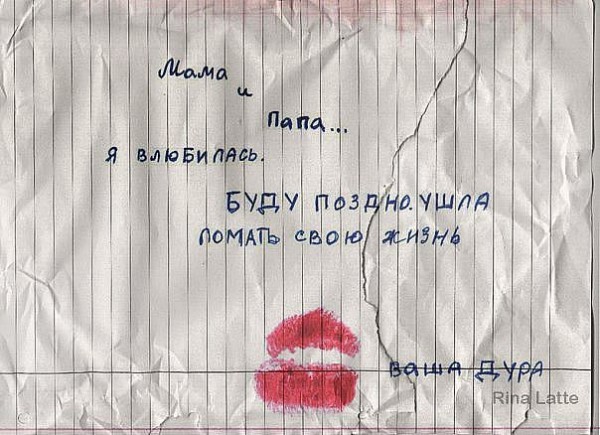 Мама
и
Папа...
Я ВЛЮБИЛАСЬ.
БУДУ ПОЗДНО. УШЛА
ЛОМАТЬ СВОЮ ЖИЗНЬ
ВАША ДУРА
Rina Latte